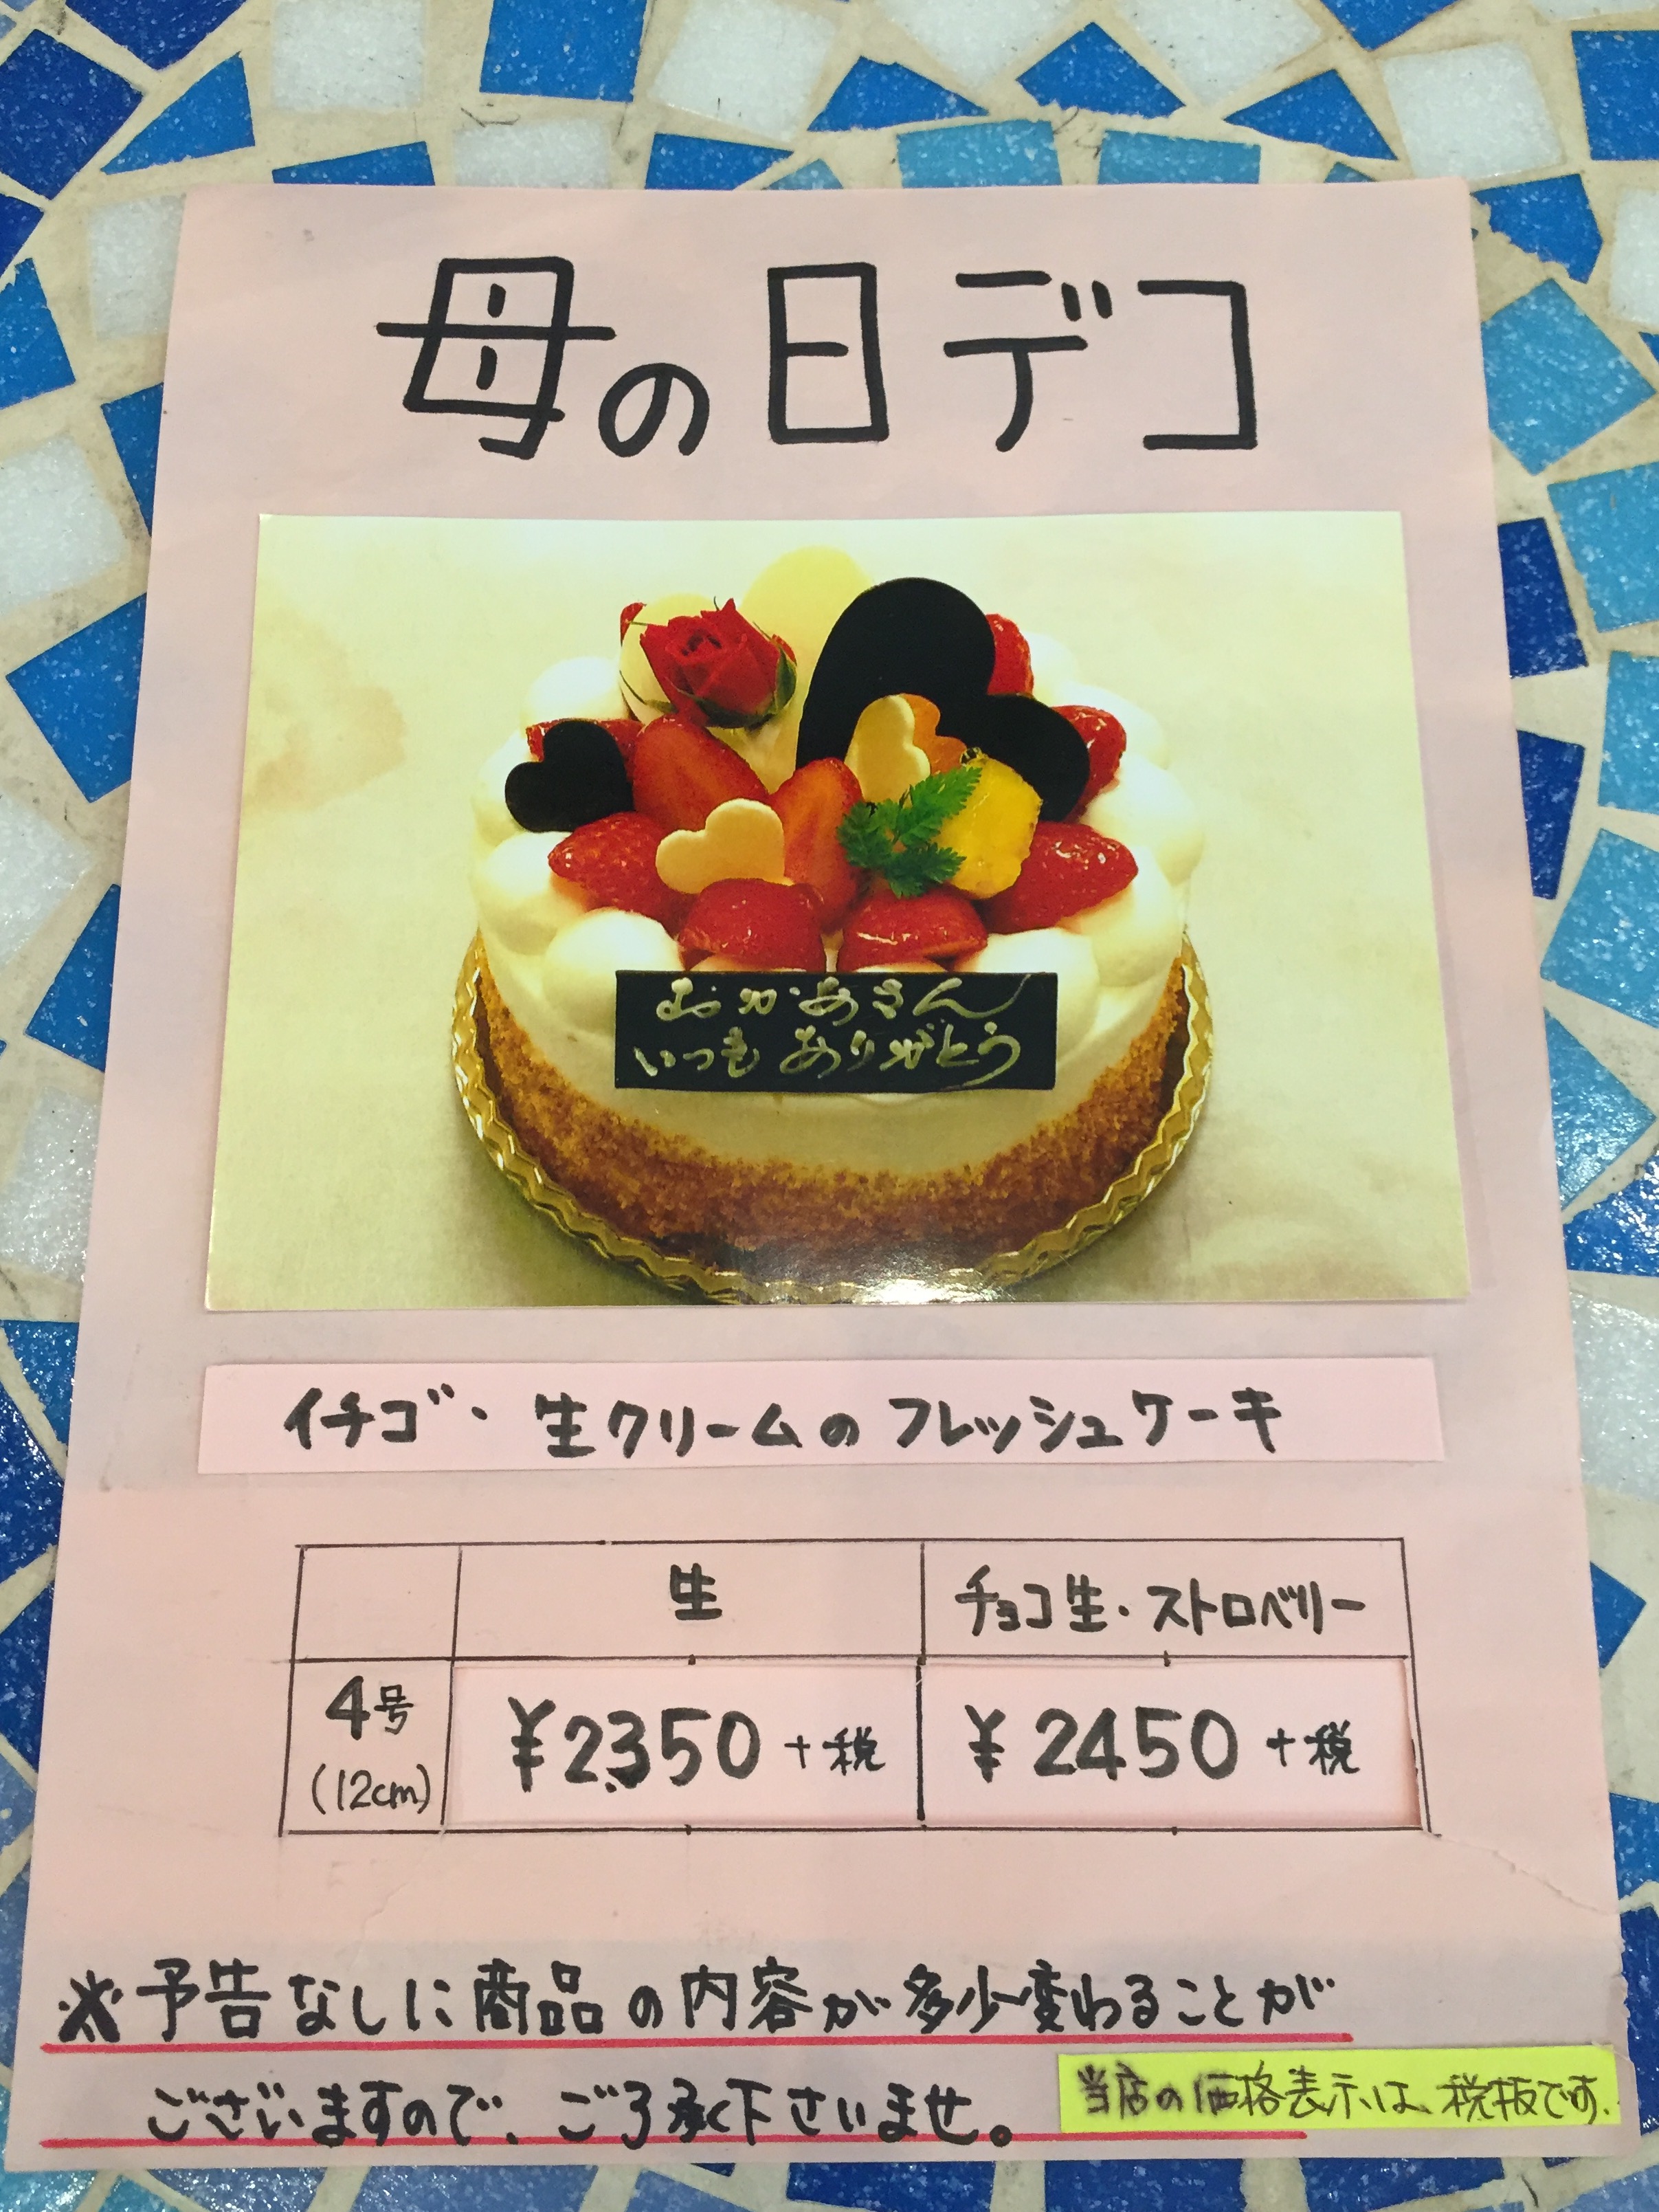 母の日デコ
おかあさん
いつもありがとう
イチゴ・生クリームのフレッシュケーキ
生
チョコ生・ストロベリー
4号
(12cm)
¥2350+税
¥2450+税
※予告なしに商品の内容が多少変わることが
ございますので、ご了承下さいませ。
当店の価格表示は、税抜です.